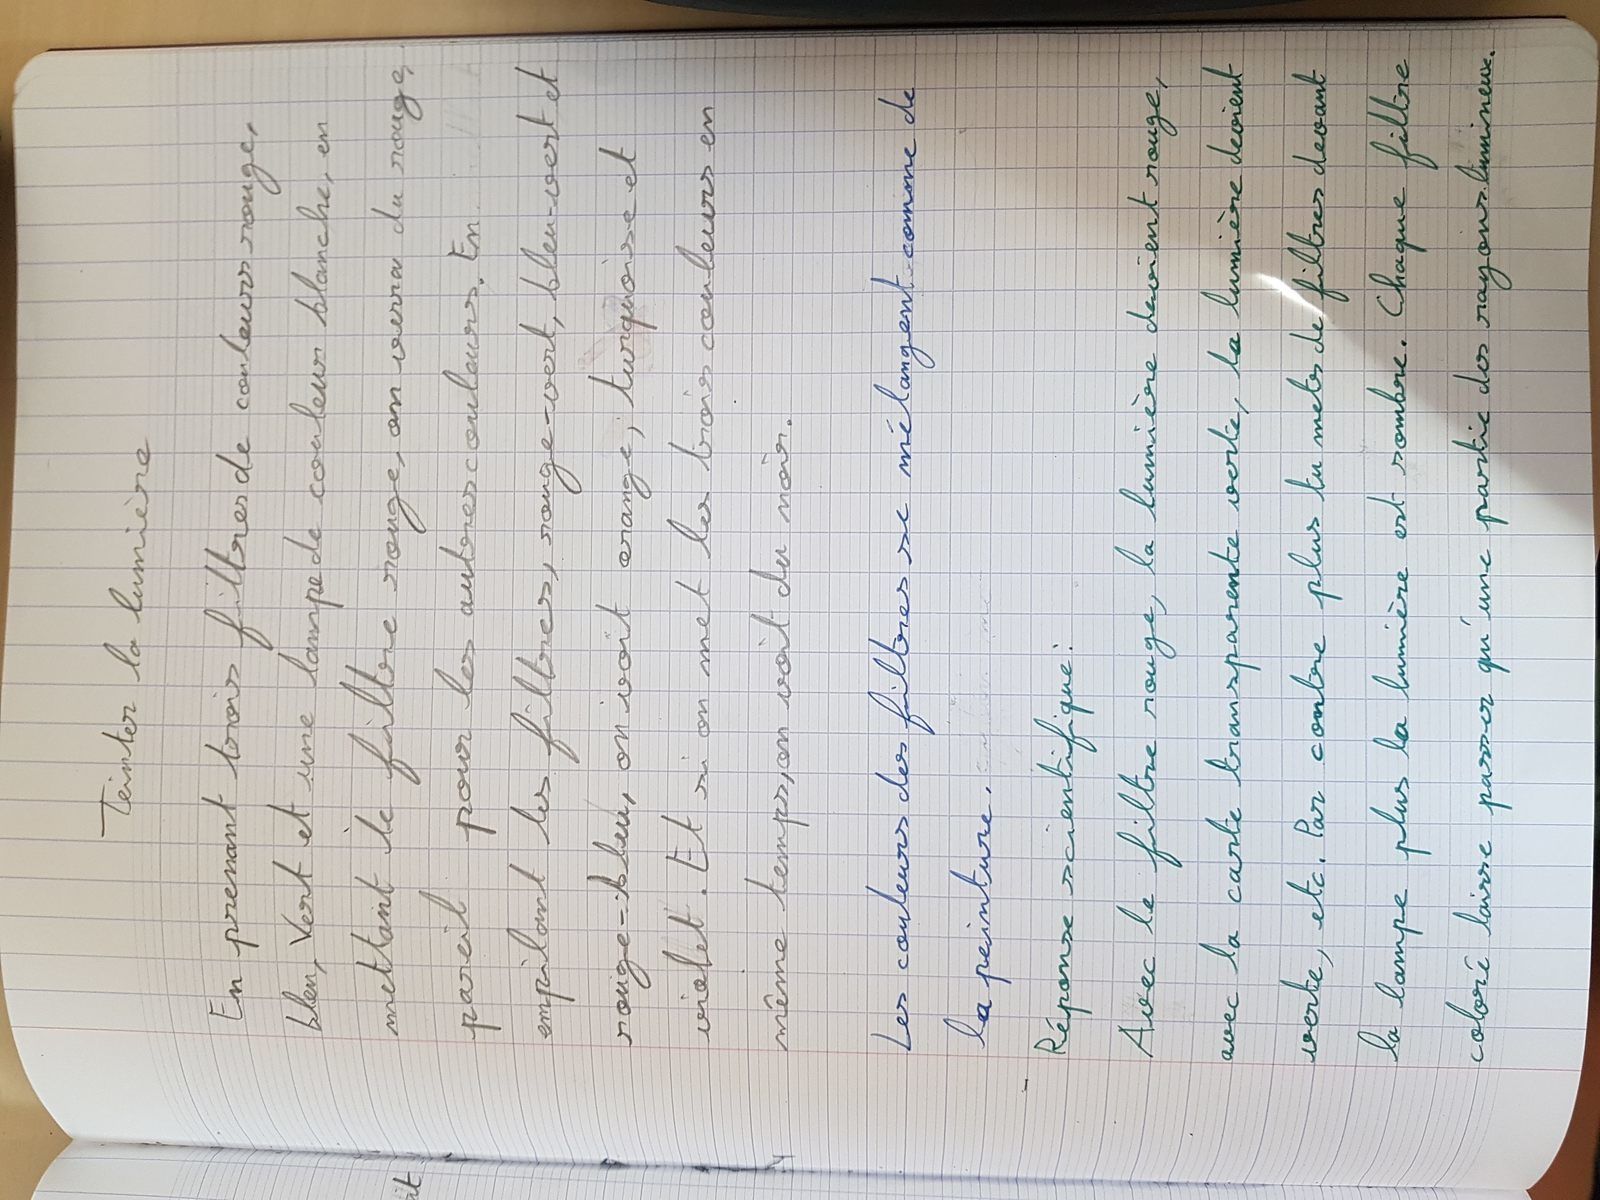 Teinter la lumière
En prenant trois filtres de couleurs rouge,
bleu, Vert et une lampe de couleur blanche, en
mettant le filtre rouge, on verra du rouge,
pareil pour les autres couleurs. En
empilant les filtres, rouge-vert, bleu-vert et
rouge-bleu, on voit orange, turquoise et
violet. Et si on met les trois couleurs en
même temps, on voit du noir.
Les couleurs des filtres se mélangent comme de
la peinture.
Réponse scientifique:
Avec le filtre rouge, la lumière devient rouge,
avec la carte transparente verte, la lumière devient
verte, etc. Par contre plus tu mets de filtres devant
la lampe plus la lumière est sombre. Chaque filtre
coloré laisse passer qu'une partie des rayons lumineux.